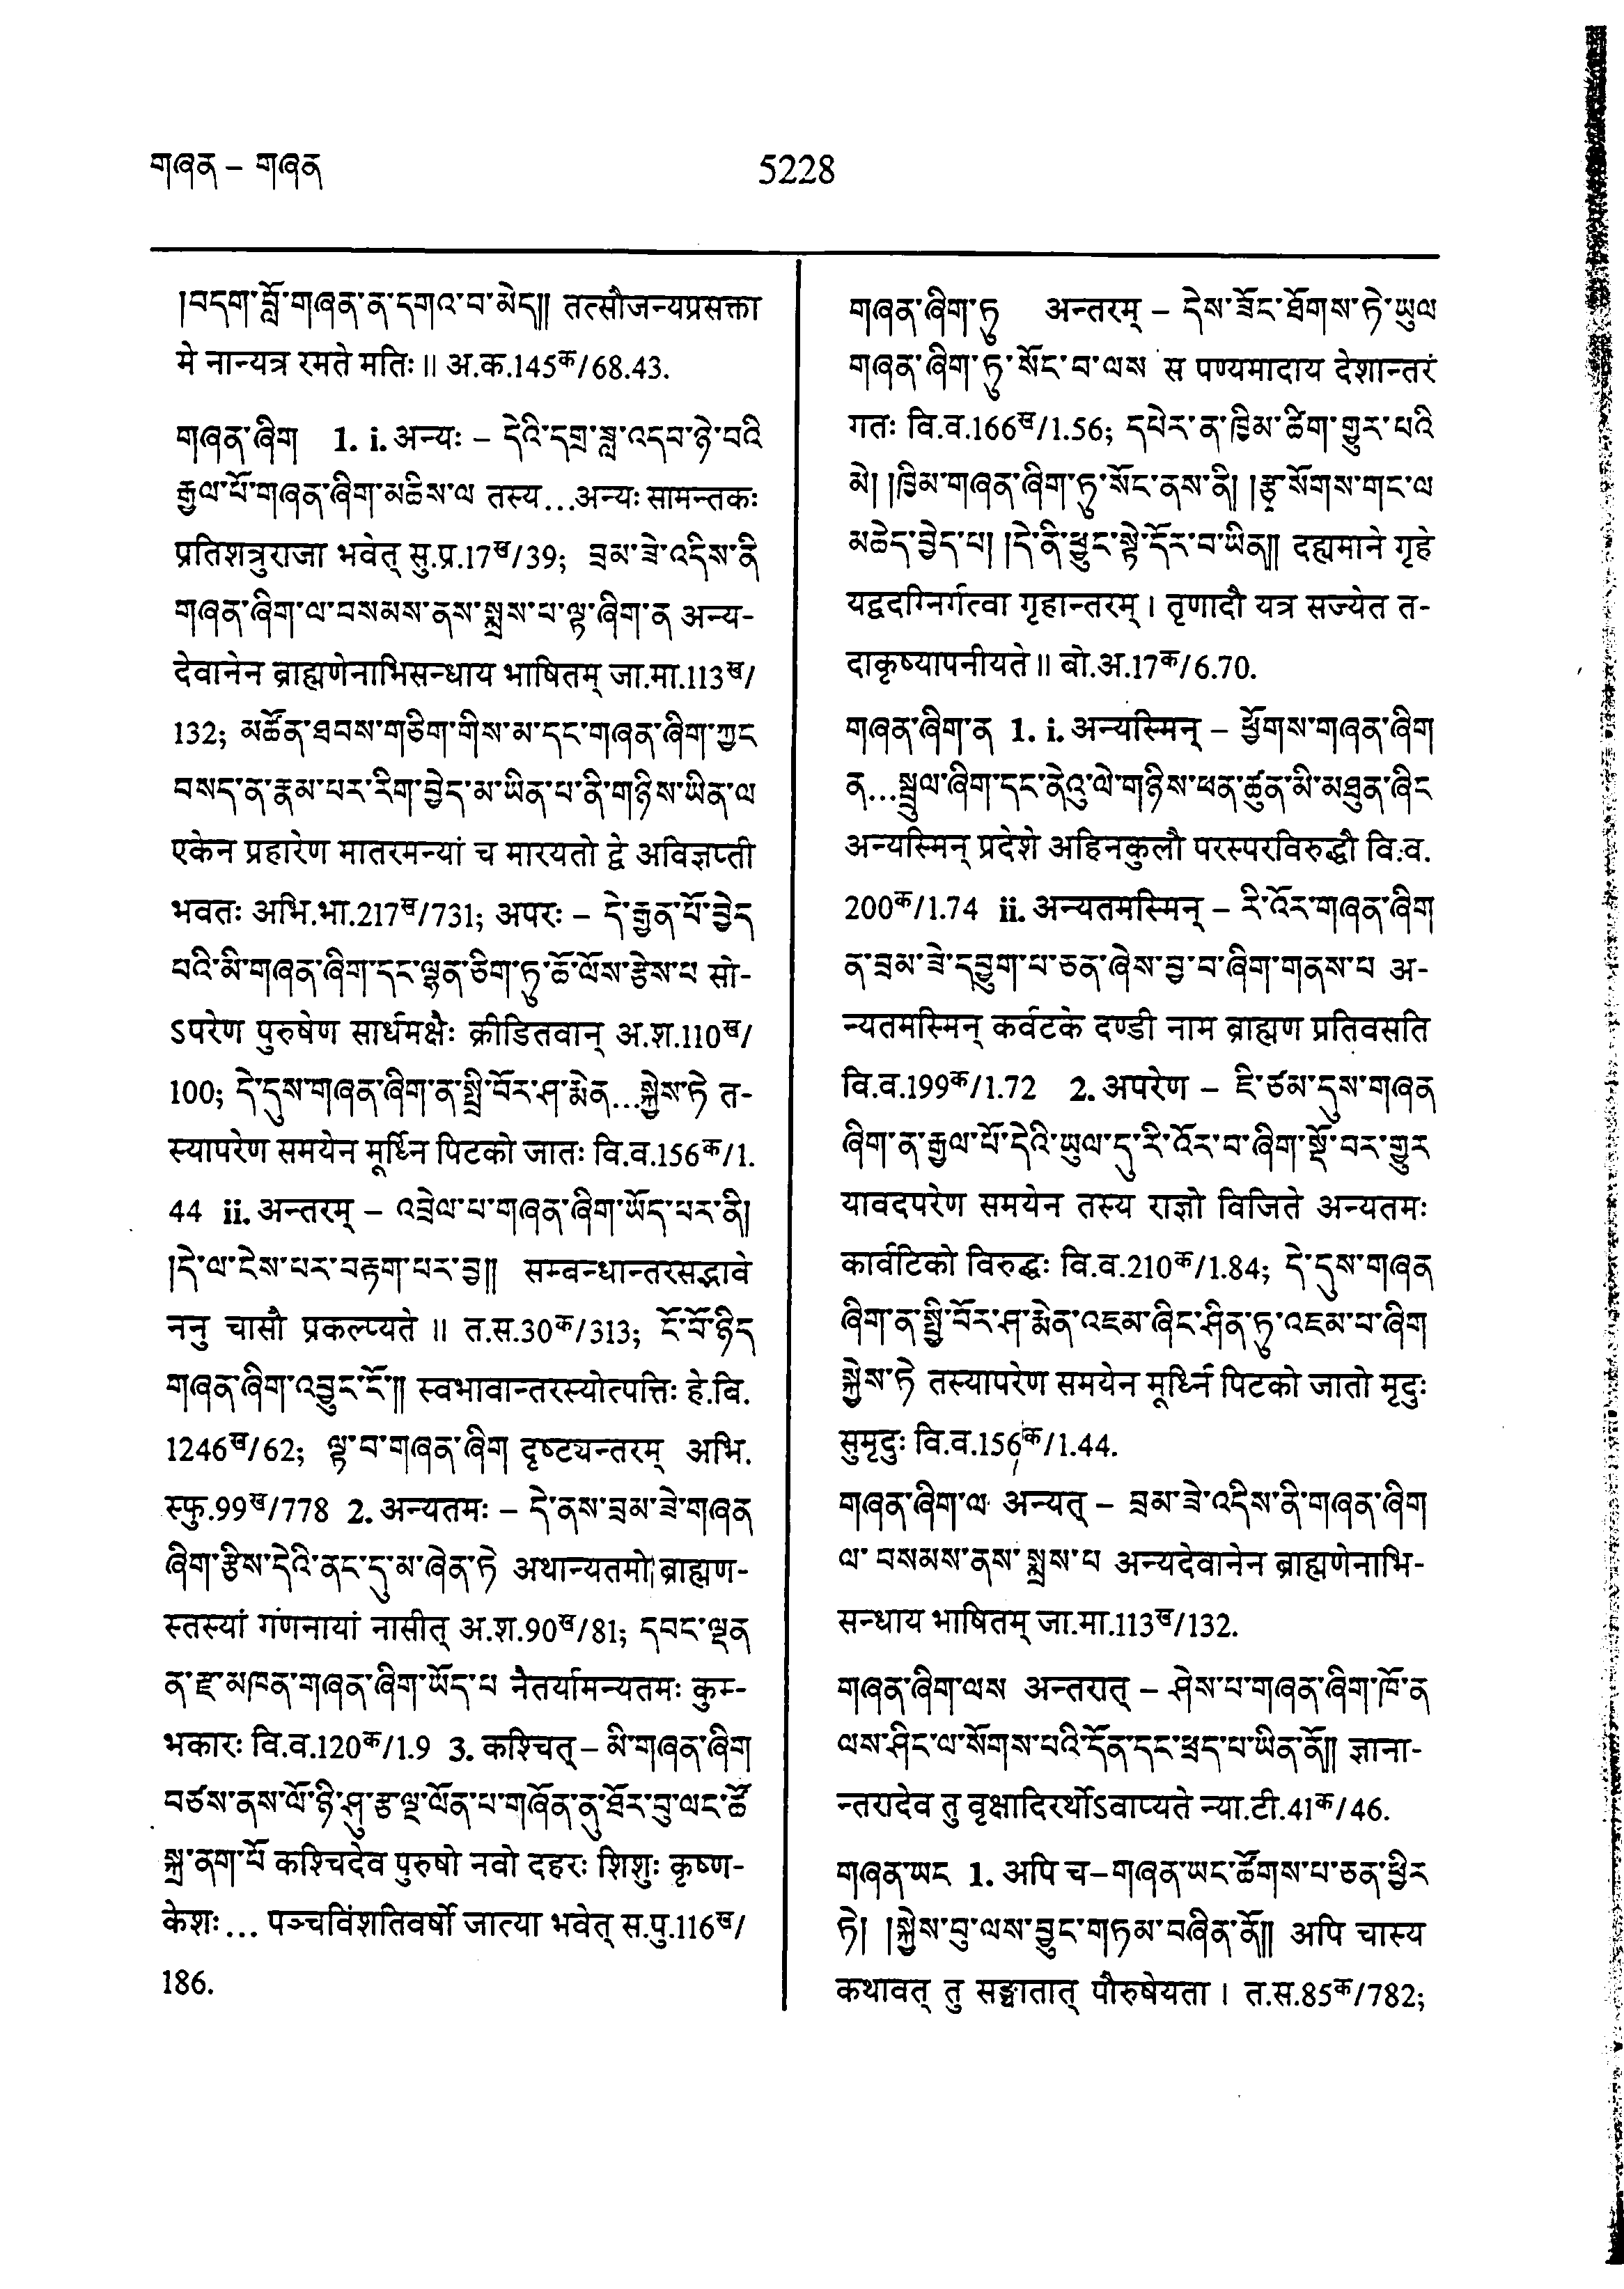 གཞན – གཞན
5228
།བདག་བློ་གཞན་ན་དགའ་བ་མེད།། तत्सौजन्यप्रसक्ता
मे नान्यत्र रमते मतिः॥ अ.क.145क/68.43.
གཞན་ཞིག 1. i. अन्यः – དེའི་དགྲ་ཟླ་འདབ་ཉེ་བའི
རྒྱལ་པོ་གཞན་ཞིག་མཆིས་ལ तस्य...अन्यः सामन्तकः
प्रतिशत्रुराजा भवेत् सु.प्र.17ख/39; བྲམ་ཟེ་འདིས་ནི
གཞན་ཞིག་ལ་བསམས་ནས་སྨྲས་པ་ལྟ་ཞིག་ན अन्य-
देवानेन ब्राह्मणेनाभिसन्धाय भाषितम् जा.मा.113ख/
132; མཚོན་ཐབས་གཅིག་གིས་མ་དང་གཞན་ཞིག་ཀྱང
བསད་ན་རྣམ་པར་རིག་བྱེད་མ་ཡིན་པ་ནི་གཉིས་ཡིན་ལ
एकेन प्रहारेण मातरमन्यां च मारयतो द्वे अविज्ञप्ती
भवतः अभि.भा.217ख/731; अपरः – དེ་རྒྱན་པོ་བྱེད
པའི་མི་གཞན་ཞིག་དང་ལྷན་ཅིག་ཏུ་ཆོ་ལོས་རྩེས་པ सो-
ऽपरेण पुरुषेण सार्धमक्षैः क्रीडितवान् अ.श.110ख/
100; དེ་དུས་གཞན་ཞིག་ན་སྤྱི་བོར་ཤ་རྨེན...སྐྱེས་ཏེ त-
स्यापरेण समयेन मूर्ध्नि पिटको जातः वि.व.156क/1.
44 ii. अन्तरम् – འབྲེལ་པ་གཞན་ཞིག་ཡོད་པར་ནི།
།དེ་ལ་ངེས་པར་བརྟག་པར་བྱ།། सम्बन्धान्तरसद्भावे
ननु चासौ प्रकल्प्यते॥ त.स.30क/313; ངོ་བོ་ཉིད
གཞན་ཞིག་འབྱུང་ངོ་།། स्वभावान्तरस्योत्पत्तिः हे.बि.
1246ख/62; ལྟ་བ་གཞན་ཞིག दृष्ट्यन्तरम् अभि.
स्फु.99ख/778 2. अन्यतमः – དེ་ནས་བྲམ་ཟེ་གཞན
ཞིག་རྩིས་དེའི་ནང་དུ་མ་ཞེན་ཏེ अथान्यतमो ब्राह्मण-
स्तस्यां गणनायां नासीत् अ.श.90ख/81; དབང་ལྡན
ན་རྫ་མཁན་གཞན་ཞིག་ཡོད་པ नैतर्यामन्यतमः कुम्-
भकारः वि.व.120क/1.9 3. कश्चित् – མི་གཞན་ཞིག
བཙས་ནས་ལོ་ཉི་ཤུ་རྩ་ལྔ་ལོན་པ་གཞོན་ནུ་ཐོར་བུ་ལང་ཚོ
སྐྲ་ནག་པོ कश्चिदेव पुरुषो नवो दहरः शिशुः कृष्ण-
केशः... पञ्चविंशतिवर्षो जात्या भवेत् स.पु.116ख/
186.
གཞན་ཞིག་ཏུ अन्तरम् – དེས་ཟོང་ཐོགས་ཏེ་ཡུལ
གཞན་ཞིག་ཏུ་སོང་བ་ལས स पण्यमादाय देशान्तरं
गतः वि.व.166ख/1.56; དཔེར་ན་ཁྱིམ་ཚིག་གྱུར་པའི
མེ། །ཁྱིམ་གཞན་ཞིག་ཏུ་སོང་ནས་ནི། །རྩྭ་སོགས་གང་ལ
མཆེད་བྱེད་པ། །དེ་ནི་ཕྱུང་སྟེ་དོར་བ་ཡིན།། दह्यमाने गृहे
यद्वदग्निर्गत्वा गृहान्तरम्। तृणादौ यत्र सज्येत त-
दाकृष्यापनीयते॥ बो.अ.17क/6.70.
གཞན་ཞིག་ན 1. i. अन्यस्मिन् – ཕྱོགས་གཞན་ཞིག
ན...སྦྲུལ་ཞིག་དང་ནེའུ་ལེ་གཉིས་ཕན་ཚུན་མི་མཐུན་ཞིང
अन्यस्मिन् प्रदेशे अहिनकुलौ परस्परविरुद्धौ वि.व.
200क/1.74 ii. अन्यतमस्मिन् – རི་འོར་གཞན་ཞིག
ན་བྲམ་ཟེ་དབྱུག་པ་ཅན་ཞེས་བྱ་བ་ཞིག་གནས་པ अ-
न्यतमस्मिन् कर्वटके दण्डी नाम ब्राह्मण प्रतिवसति
वि.व.199क/1.72 2. अपरेण – ཇི་ཙམ་དུས་གཞན
ཞིག་ན་རྒྱལ་པོ་དེའི་ཡུལ་དུ་རི་འོར་བ་ཞིག་སྡོ་བར་གྱུར
यावदपरेण समयेन तस्य राज्ञो विजिते अन्यतमः
कार्वटिको विरुद्धः वि.व.210क/1.84; དེ་དུས་གཞན
ཞིག་ན་སྤྱི་བོར་ཤ་རྨེན་འཇམ་ཞིང་ཤིན་ཏུ་འཇམ་པ་ཞིག
སྐྱེས་ཏེ तस्यापरेण समयेन मूर्ध्नि पिटको जातो मृदुः
सुमृदुः वि.व.156क/1.44.
གཞན་ཞིག་ལ अन्यत् – བྲམ་ཟེ་འདིས་ནི་གཞན་ཞིག
ལ་ བསམས་ནས་སྨྲས་པ अन्यदेवानेन ब्राह्मणेनाभि-
सन्धाय भाषितम् जा.मा.113ख/132.
གཞན་ཞིག་ལས अन्तरात् – ཤེས་པ་གཞན་ཞིག་ཁོ་ན
ལས་ཤིང་ལ་སོགས་པའི་དོན་དང་ཕྲད་པ་ཡིན་ནོ།། ज्ञाना-
न्तरादेव तु वृक्षादिरर्थोऽवाप्यते न्या.टी.41क/46.
གཞན་ཡང 1. अपि च–གཞན་ཡང་ཚོགས་པ་ཅན་ཕྱིར
ཏེ། །སྐྱེས་བུ་ལས་བྱུང་གཏམ་བཞིན་ནོ།། अपि चास्य
कथावत् तु सङ्घातात् पौरुषेयता। त.स.85क/782;